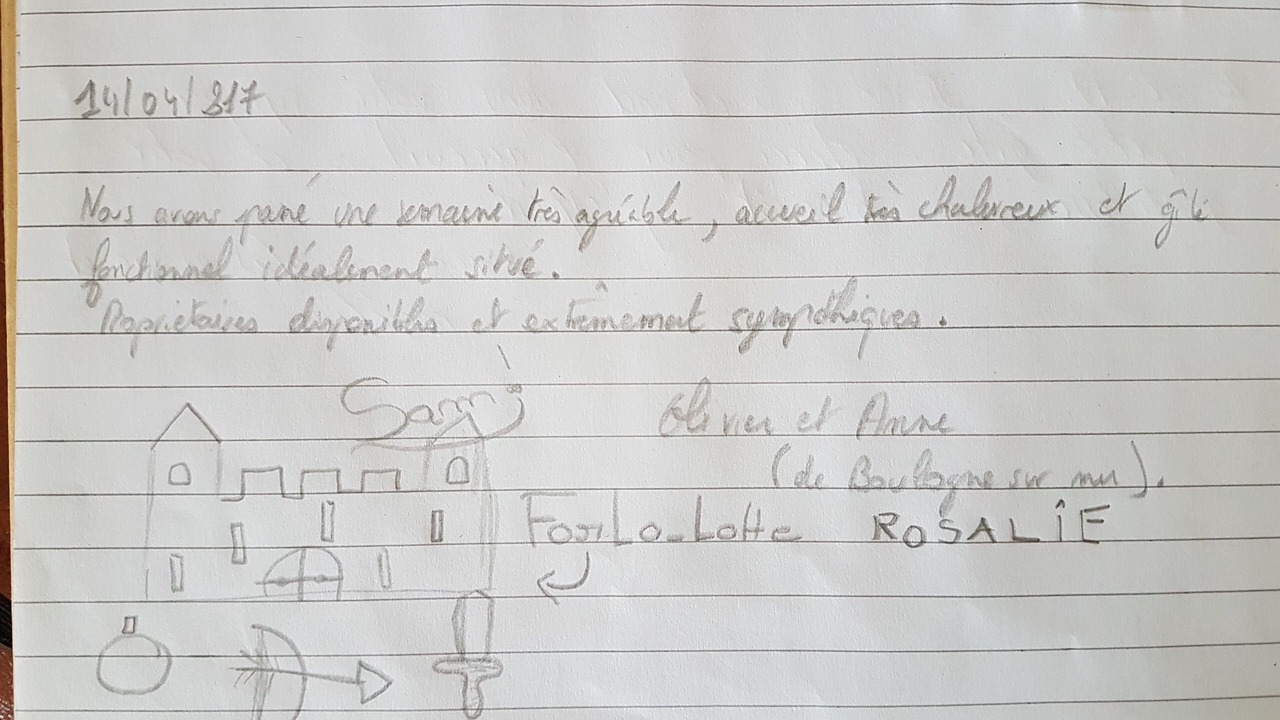 14/04/2017
Nous avons passé une semaine très agréable, accueil très chaleureux et gîte
fonctionnel idéalement situé.
Propriétaires disponibles et extrêmement sympathiques.
Samy
Olivier et Anne
(de Boulogne sur mer).
ROSALÎE